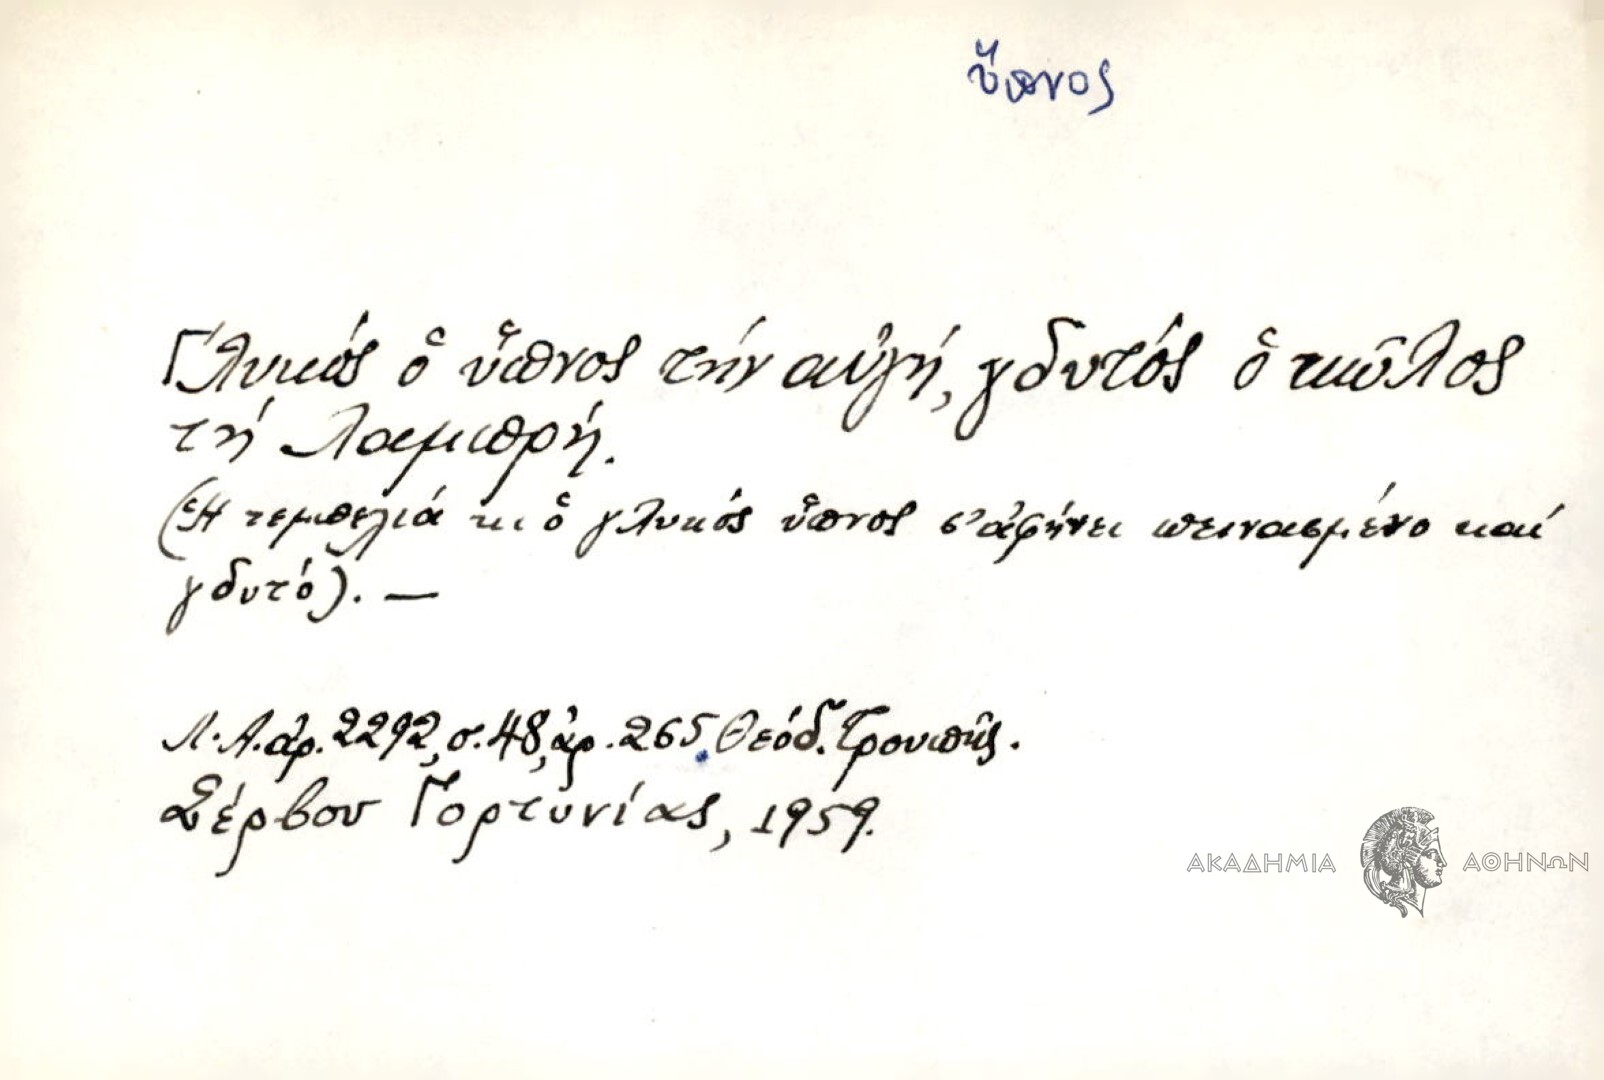 ὕπνος
Γλυκός ὁ ὕπνος τήν αὐγή, γδυτός ὁ κῶλος
τή Λαμπρή.
(Ἡ τεμπελιά κι ὁ γλυκός ὕπνος σ' ἀφήνει πεινασμένο καί
γδυτό). —
Λ.Α. ἀρ. 2292, σ. 48, ἀρ. 265. Θεόδ. Τρουπῆς.
Σέρβου Γορτυνίας, 1959.
ΑΚΑΔΗΜΙΑ ΑΘΗΝΩΝ